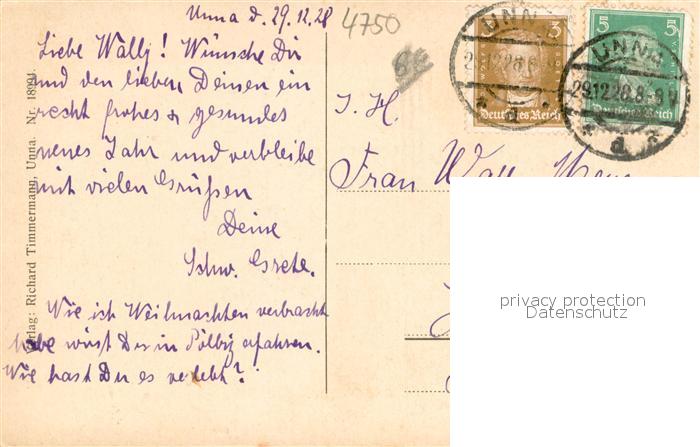 Unna d. 29.12.28
4750
Liebe Wally! Wünsche Dir
und den lieben Deinen ein
recht frohes & gesundes
neues Jahr und verbleibe
mit vielen Grüßen
Deine
Schw. Grete.
Wie ich Weihnachten verbracht
habe wirst Du in Pölbig erfahren.
Wie hast Du es verlebt?
Verlag: Richard Timmermann, Unna. Nr. 18994
3
Deutsches Reich
5 5
Deutsches Reich
UNNA
UNNA
29.12.28.8-9V
d
I. H.
Frau Wally
privacy protection
Datenschutz